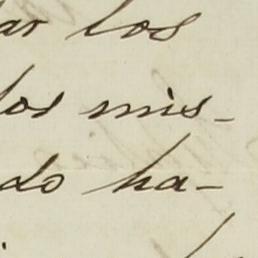 ar los
los mis-
do ha-